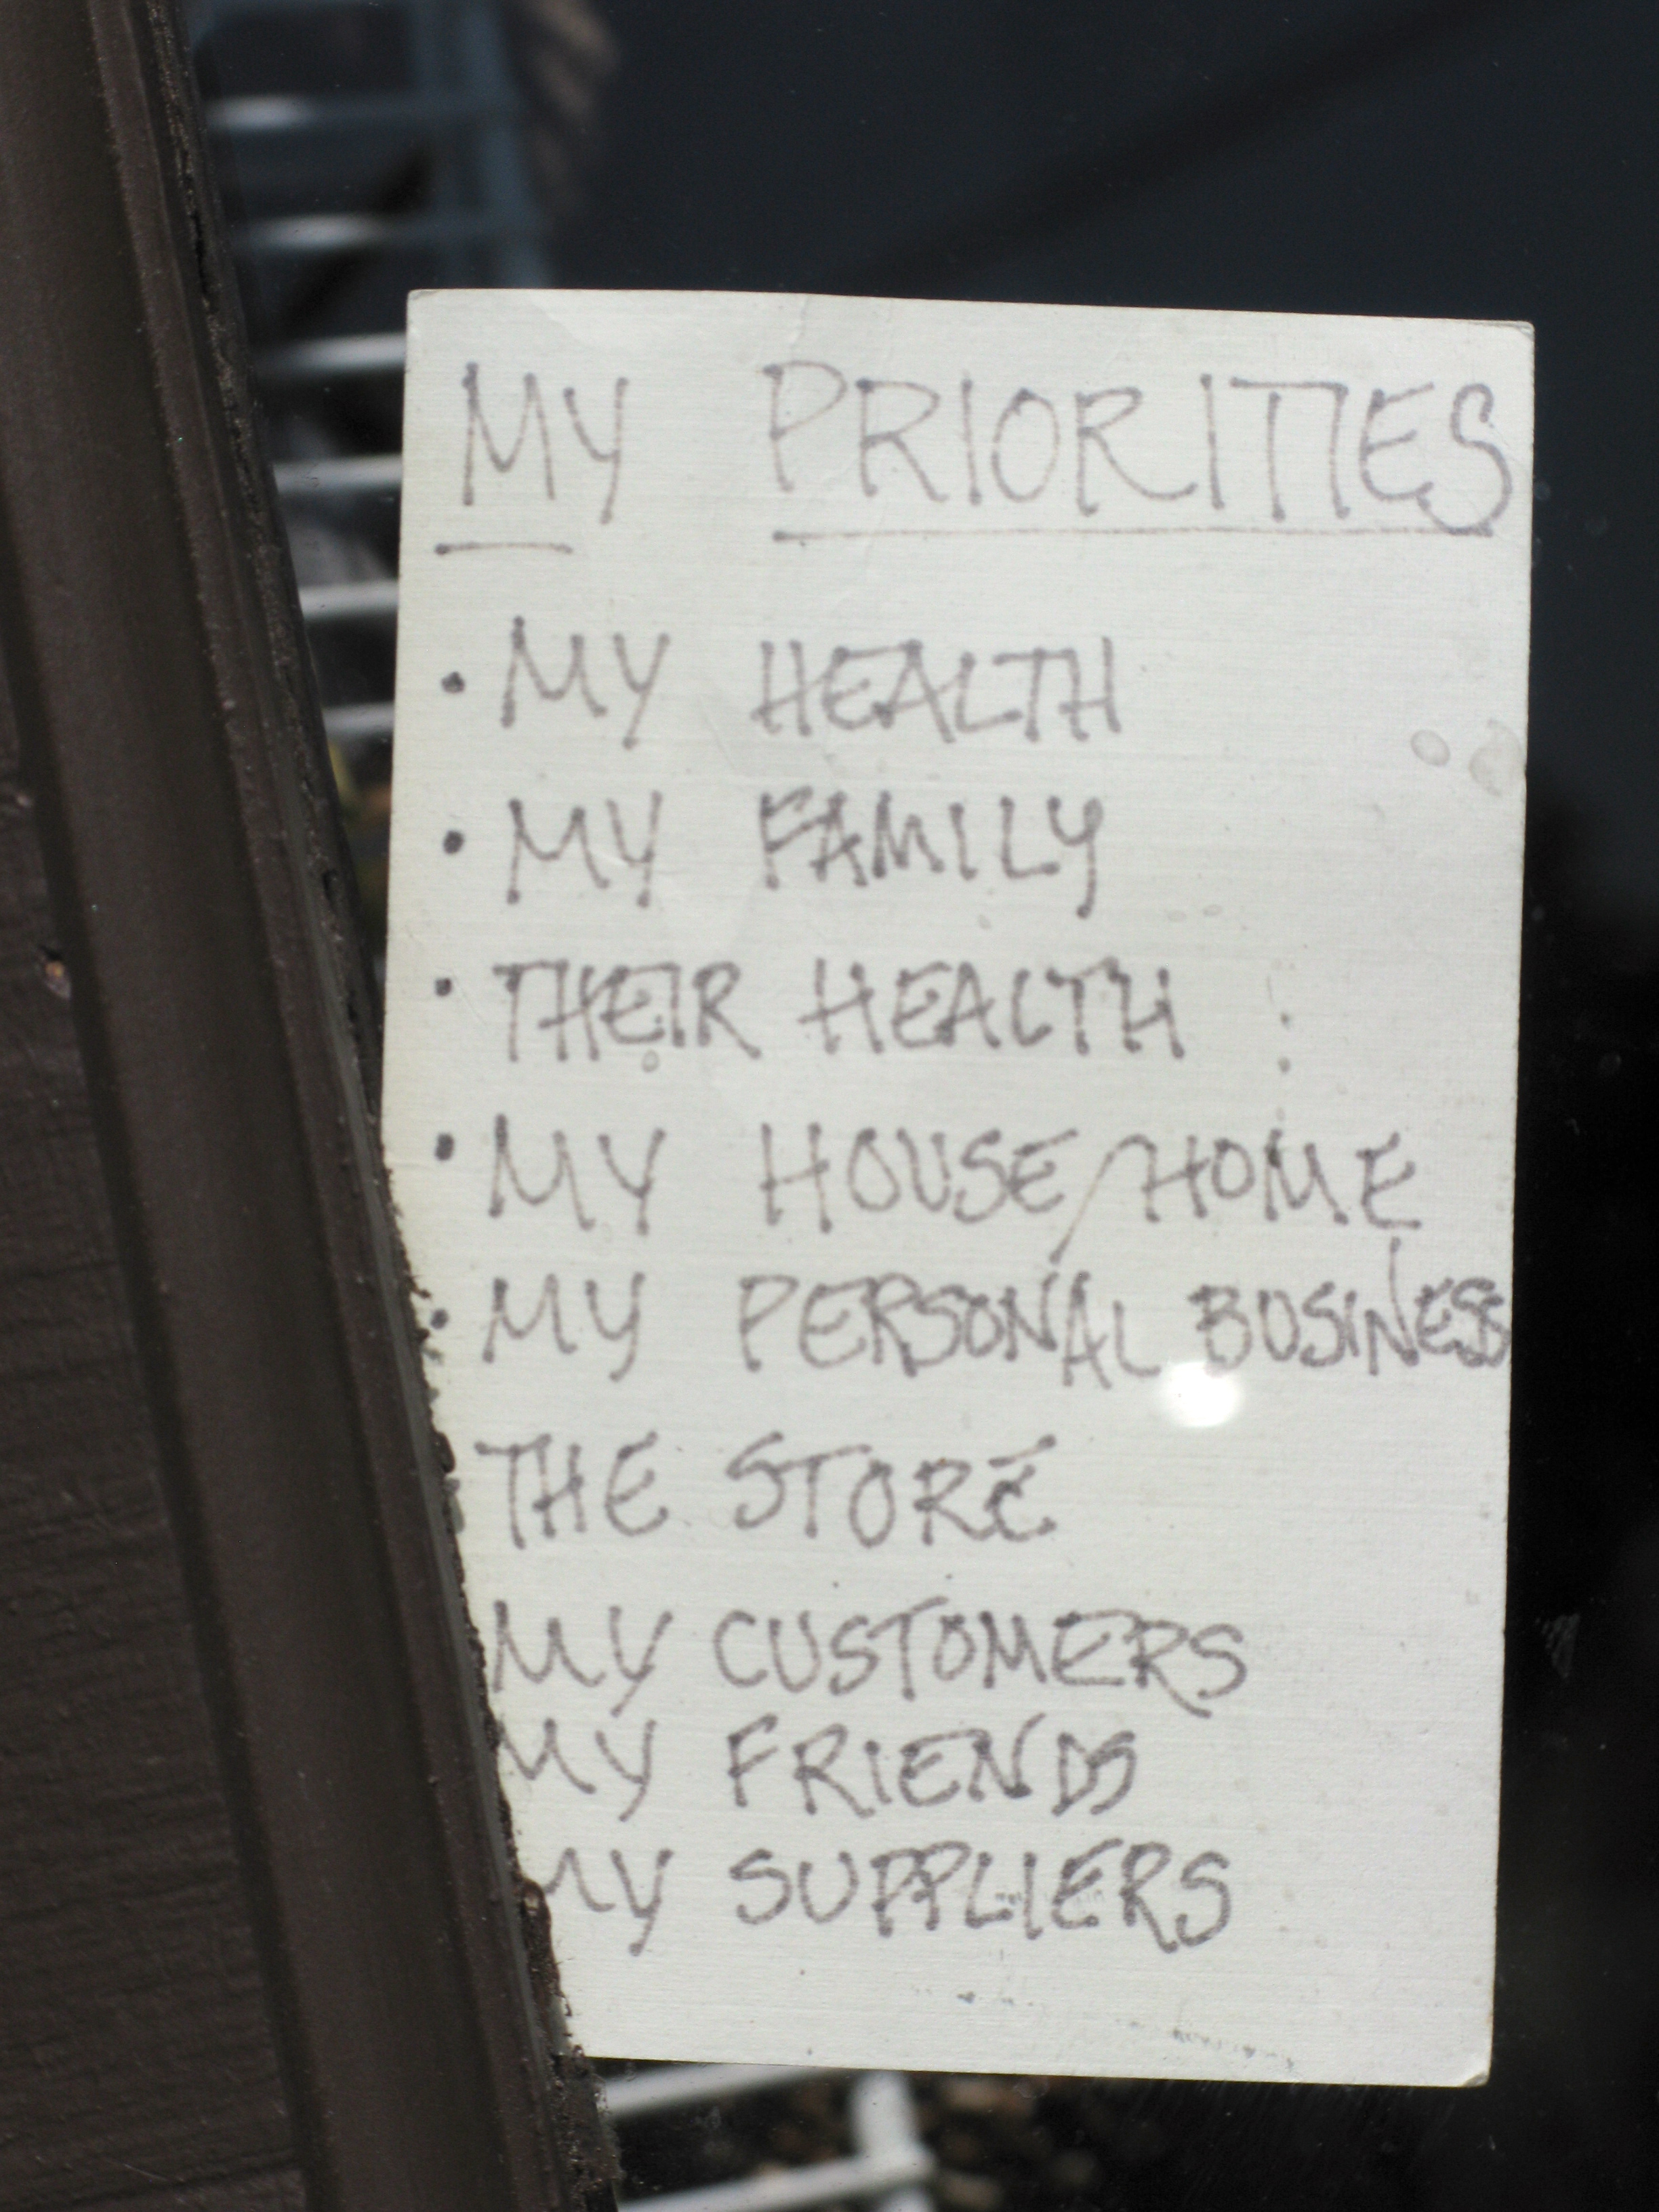 MY PRIORITIES
• MY HEALTH
• MY FAMILY
• THEIR HEALTH
• MY HOUSE/HOME
• MY PERSONAL BUSINESS
THE STORE
MY CUSTOMERS
MY FRIENDS
MY SUPPLIERS